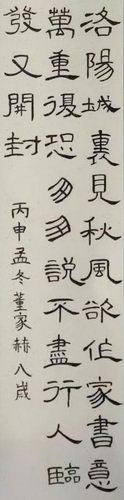 洛陽城裏見秋風欲作家書意
萬重復恐匆匆說不盡行人臨
發又開封
丙申孟冬董家赫八歲